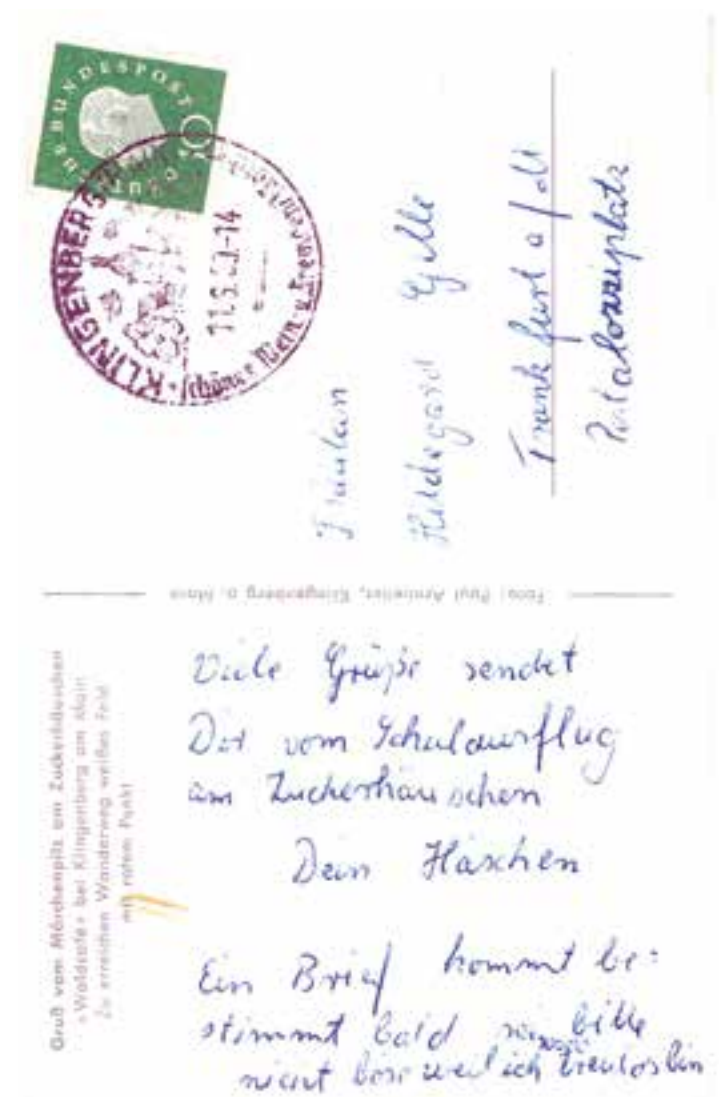 DEUTSCHE BUNDESPOST
KLINGENBERG
schöner Wein- u. Fremdenverkehrsort
11.6.60-14
Fräulein
Hildegard Gille
Frankfurt a/M
Pestalozziplatz
Foto: Paul Klingenberg a. Main
Gruß vom Märchenpilz am Zuckerhäuschen
»Waldcafé« bei Klingenberg am Main
Zu erreichen Wanderweg weißes Feld
mit rotem Punkt
Viele Grüße sendet
Dir vom Schulausflug
am Zuckerhäuschen
Dein Häschen
Ein Brief kommt be-
stimmt bald bitte
nicht böse weil ich treulos bin